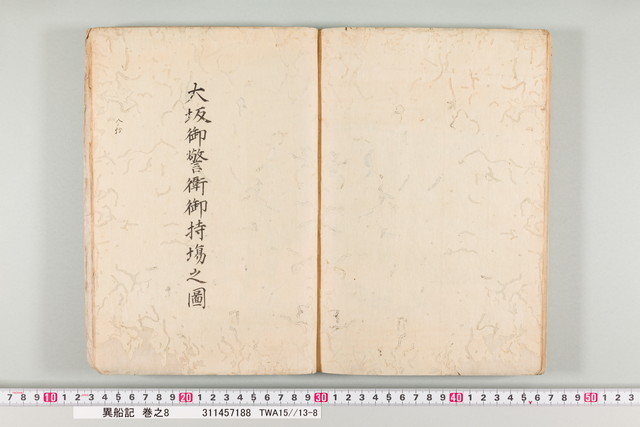 大坂御警衛御持場之圖
7 8 9 10 1 2 3 4 5 6 7 8 9 20 1 2 3 4 5 6 7 8 9 30 1 2 3 4 5 6 7 8 9 40 1 2 3 4 5 6 7 8 9 50 1 2
異船記 巻之8 311457188 TWA15//13-8